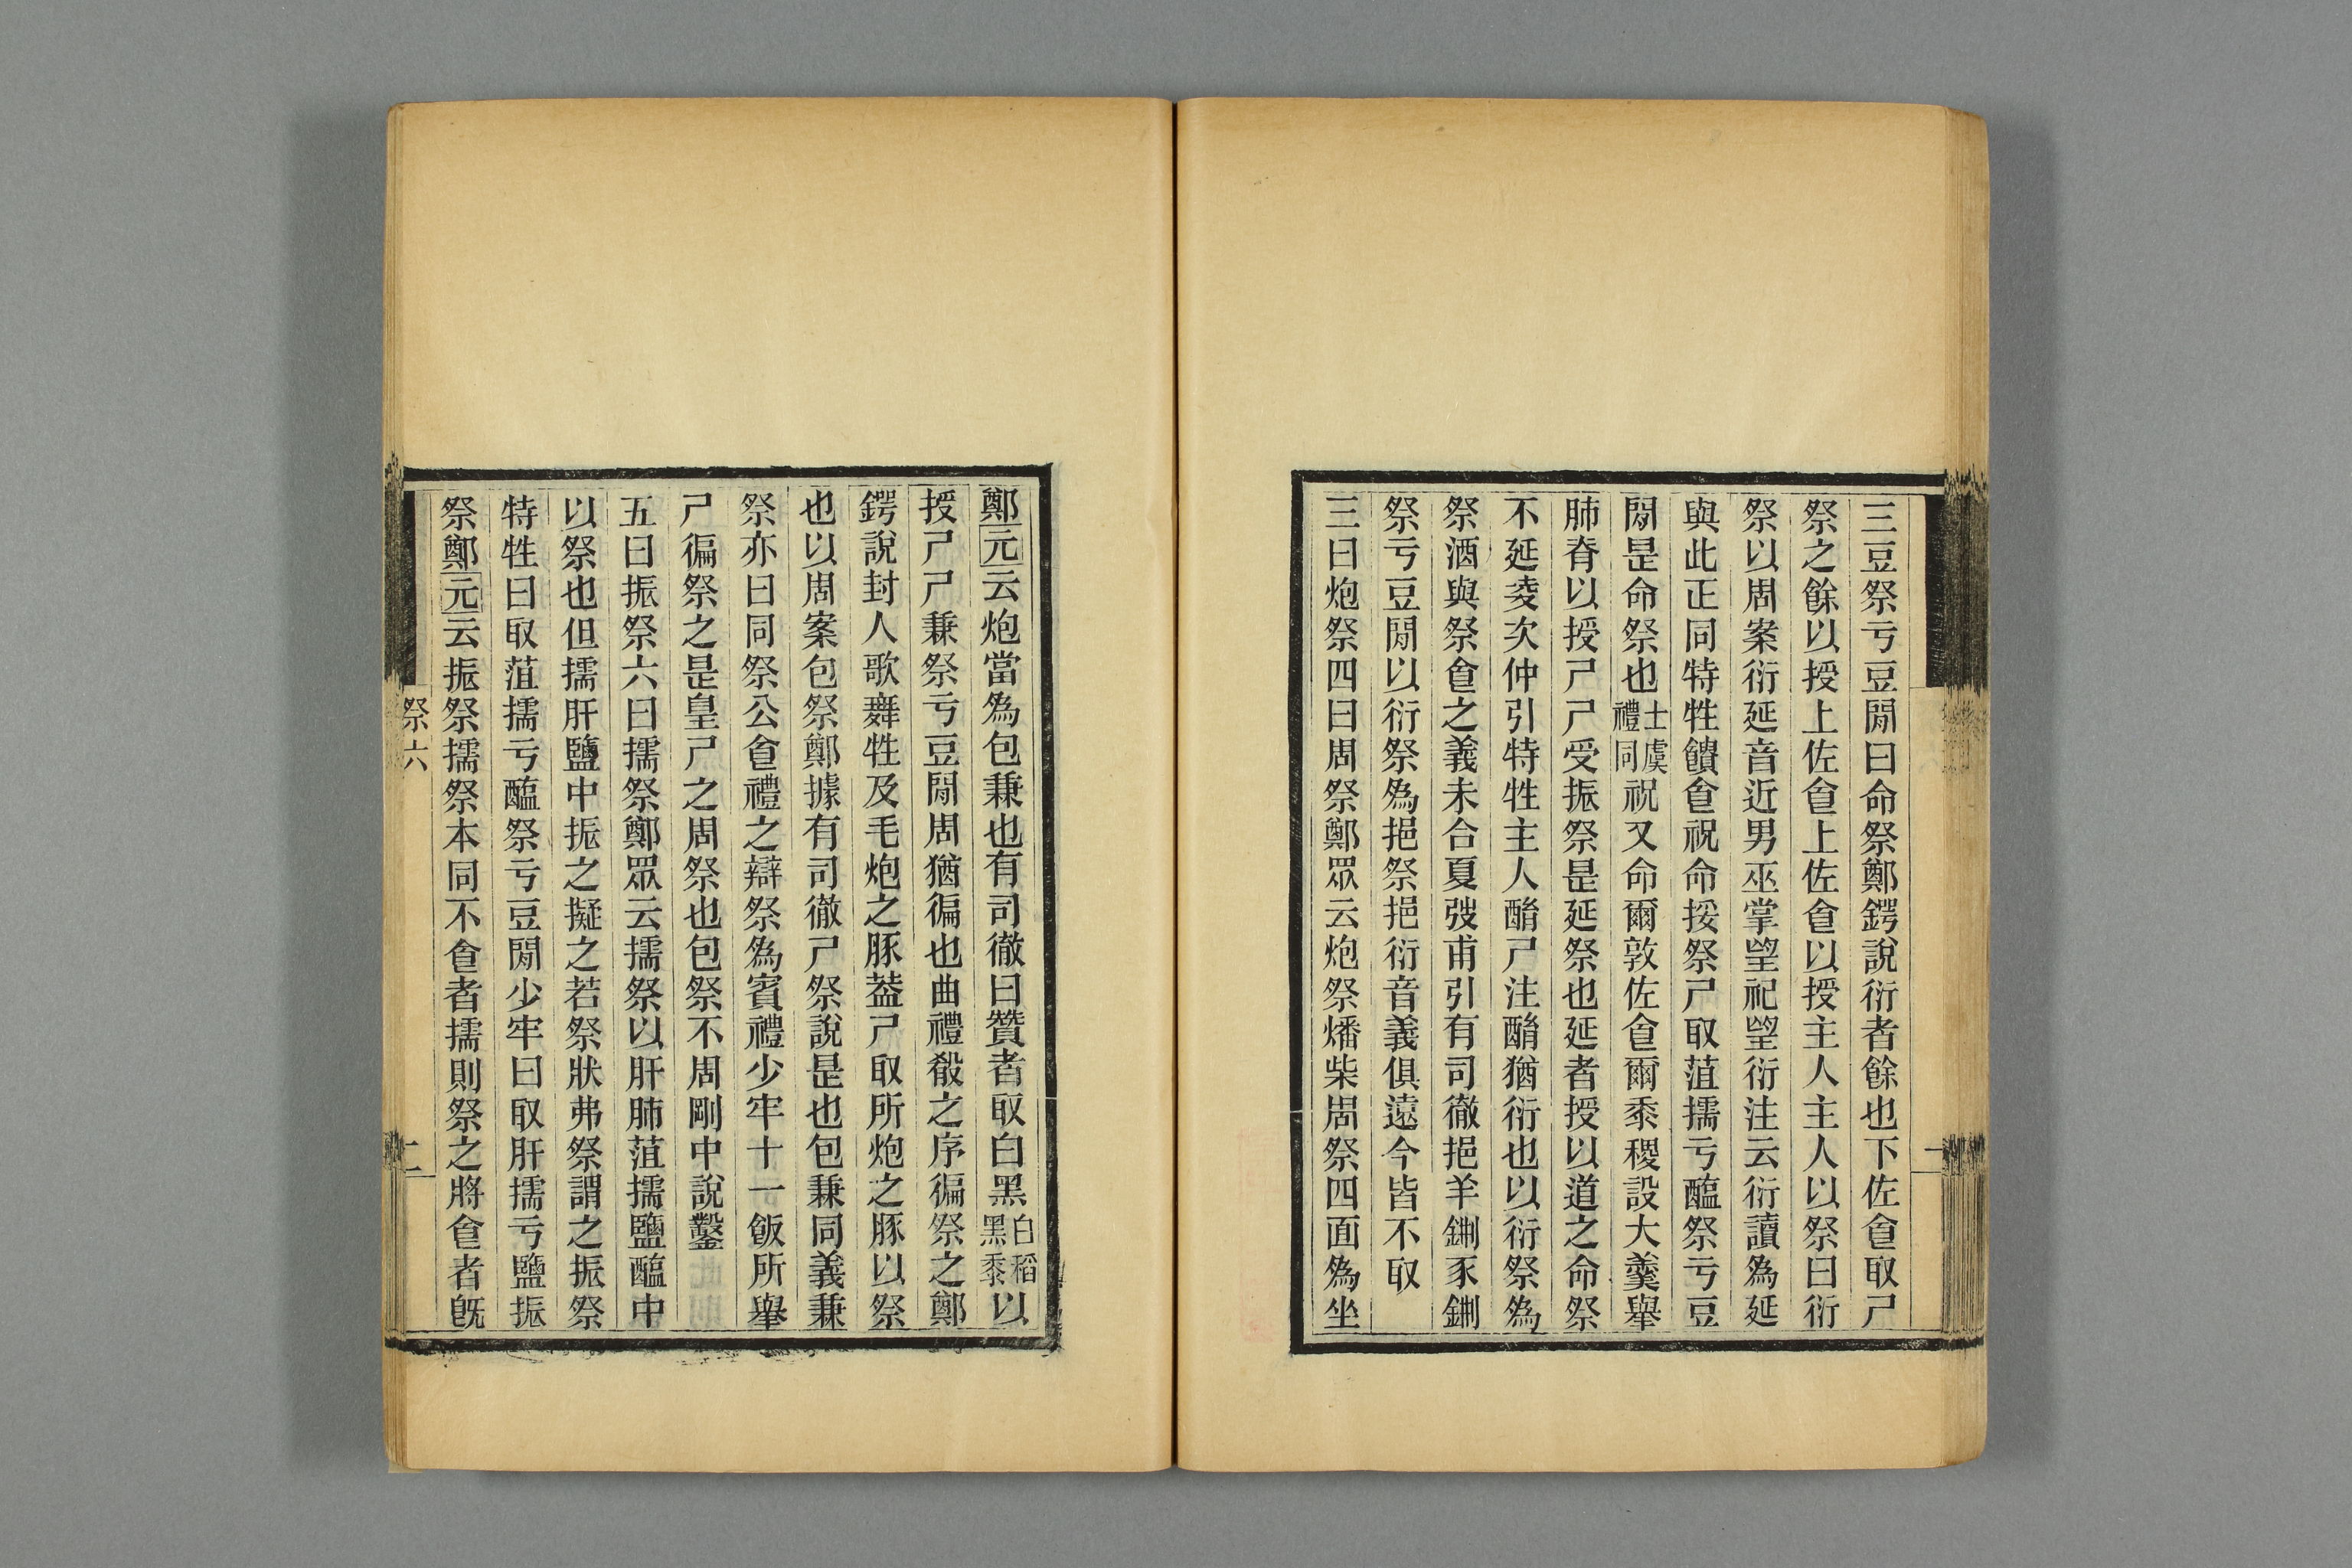 三豆祭亏豆閒曰命祭鄭鍔說衍者餘也下佐㑹取尸
祭之餘以授上佐㑹上佐㑹以授主人主人以祭曰衍
祭以周案衍延音近男巫掌朢祀朢衍注云衍讀爲延
與此正同特牲饋㑹祝命挼祭尸取菹擩亏醢祭亏豆
閒是命祭也士虞禮同祝又命爾敦佐㑹爾黍稷設大羹舉
肺脊以授尸尸受振祭是延祭也延者授以道之命祭
不延淩次仲引特牲主人酳尸注酳猶衍也以衍祭爲
祭酒與祭㑹之義未合夏弢甫引有司徹挹羊鉶豕鉶
祭亏豆閒以衍祭爲挹祭挹衍音義俱遠今皆不取
三曰炮祭四曰周祭鄭眾云炮祭燔柴周祭四面爲坐
鄭元云炮當爲包兼也有司徹曰贊者取白黑白稻黑黍以
授尸尸兼祭亏豆閒周猶徧也曲禮殽之序徧祭之鄭
鍔說封人歌舞牲及毛炮之豚葢尸取所炮之豚以祭
也以周案包祭鄭據有司徹尸祭說是也包兼同義兼
祭亦曰同祭公㑹禮之辯祭爲賓禮少牢十一飯所舉
尸徧祭之是皇尸之周祭也包祭不周剛中說鑿
五曰振祭六曰擩祭鄭眾云擩祭以肝肺菹擩鹽醢中
以祭也但擩肝鹽中振之擬之若祭狀弗祭謂之振祭
特牲曰取菹擩亏醢祭亏豆閒少牢曰取肝擩亏鹽振
祭鄭元云振祭擩祭本同不㑹者擩則祭之將㑹者旣
祭六
二